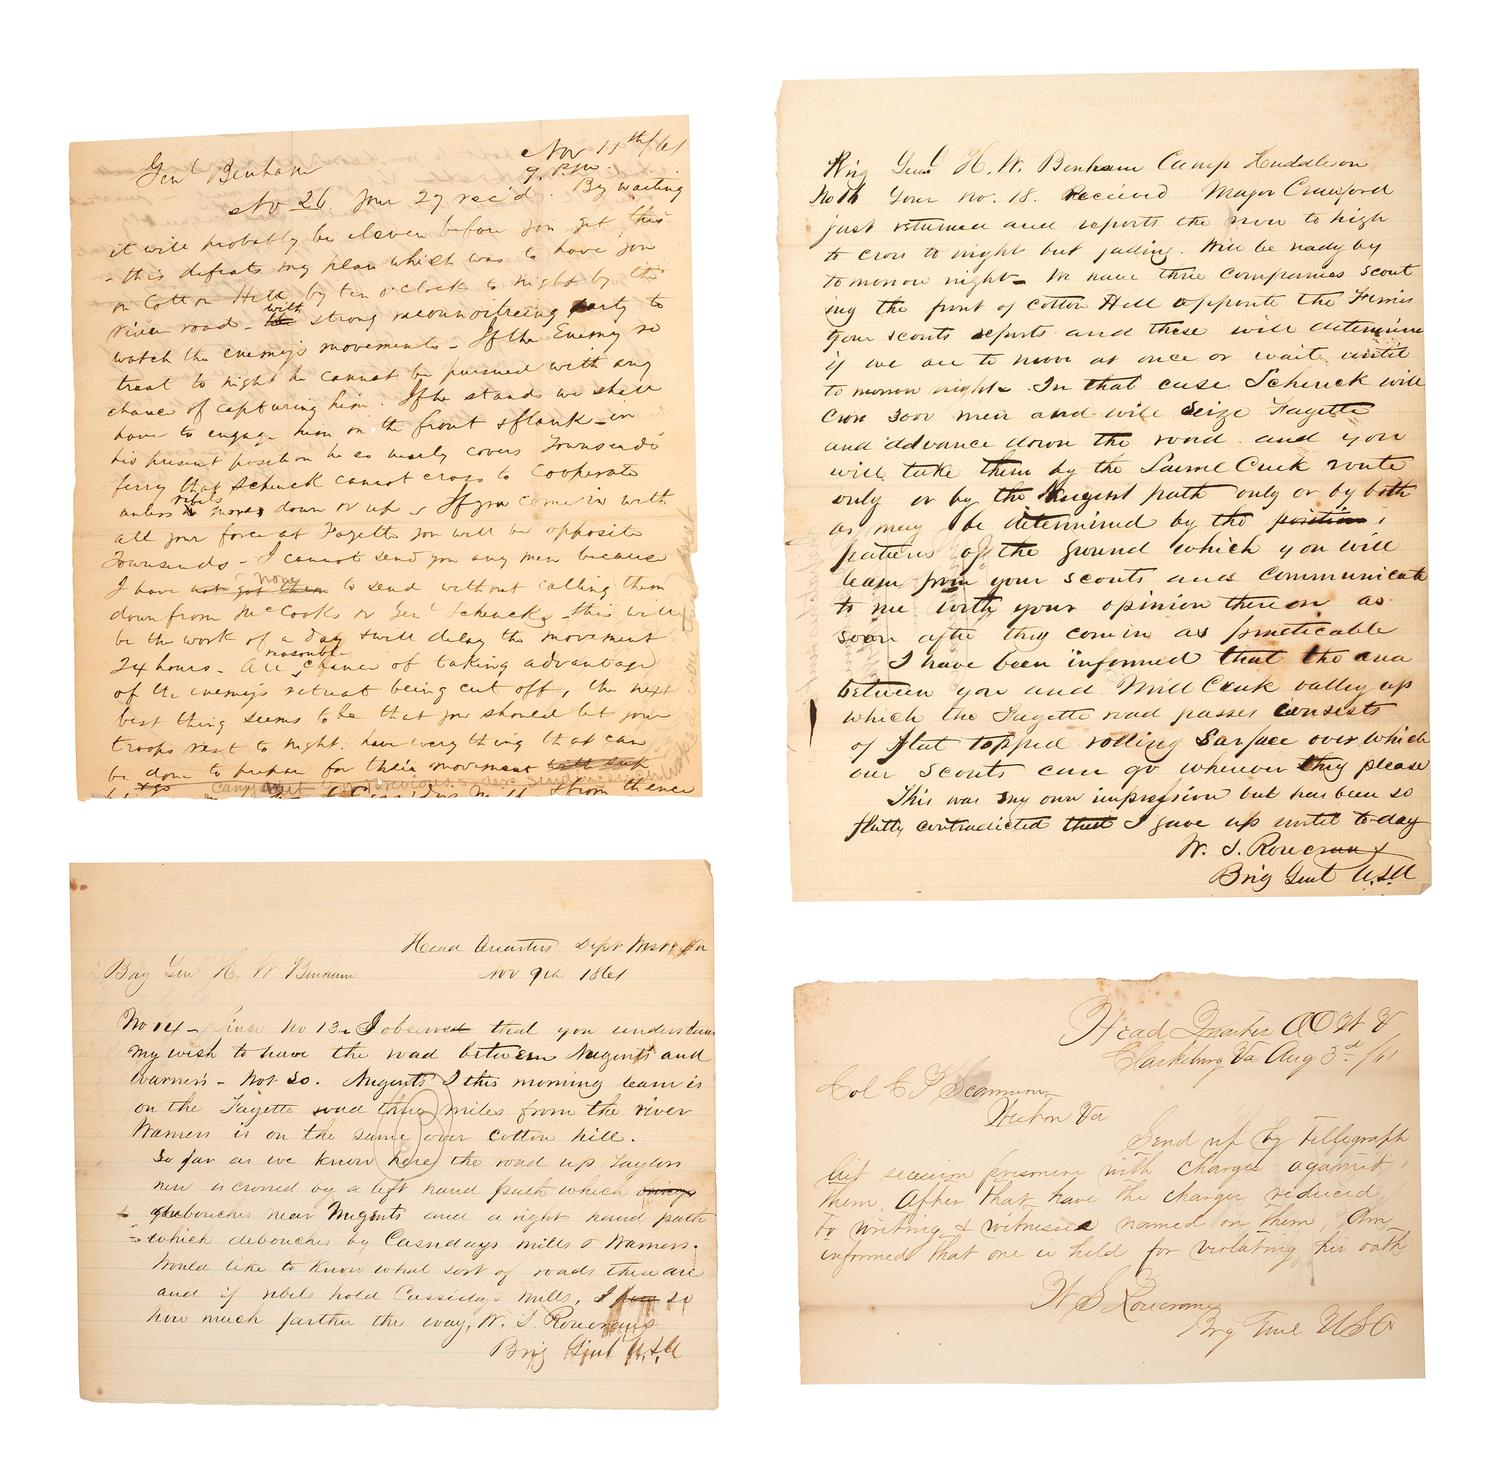 Nov 11th/61
9. P.M
Genl Benham
No 26. Your 27 rec'd. By waiting
it will probably be eleven before you get this
- this defeats my plan which was to have you
on Cotton Hill by ten o'clock to night by the
river road - with strong reconnoitreing party to
watch the enemy's movements - If the Enemy re
treat to night he cannot be pursued with any
chance of capturing him. If he stands we shall
have to engage him on the front & flank - in
his present position he so nearly covers Townsends
ferry that Schenck cannot cross to Cooperate
unless rebels move down or up. If you come in with
all your force at Fayette you will be opposite
Townsends - I cannot send you any men because
I have not got them none to send without calling them
down from McCooks or Genl Schencks - this will
be the work of a day & will delay the movement
24 hours - All reasonable chance of taking advantage
of the enemy's retreat being cut off, the next
best thing seems to be that you should let your
troops rest to night. have every thing that can
be done to prepare for their movement
from thence
Brig Genl H. W. Benham Camp Huddleson
No 16 Your no. 18. Received Major Crawford
just returned and reports the river to high
to cross to night but fading. Will be ready by
tomorrow night - We have three companies scout
ing the front of Cotton Hill opposite the Ferries
your scouts reports and these will determine
if we are to move at once or wait until
to morrow night. In that case Schenck will
cross 3000 men and will seize Fayette
and advance down the road. and you
will take them by the Laurel Creek route
only or by the Nugent path only or by both
as may be determined by the position,
features of the ground which you will
learn from your scouts and communicate
to me with your opinion thereon as
soon after they come in as practicable
I have been informed that the area
between you and Mill Creek valley up
which the Fayette road passes consists
of flat topped rolling surface over which
our scouts can go wherever they please
This was my own impression but has been so
flatly contradicted that I gave up until to-day
W. S. Rosecrans
Brig Genl U.S.A
Head Quarters Dept West Va
Brig Genl H. W Benham Nov 9th 1861
No 14 - Since No 13 - I observed that you understand
my wish to have the road between Nugents and
Warners - Not so. Nugents I this morning learn is
on the Fayette road three miles from the river
Warners is on the same over Cotton hill.
So far as we know here the road up Taylors
is crossed by a left hand path which
debouches near Nugents and a right hand path
which debouches by Cassidays mills & Warners.
Would like to know what sort of roads these are
and if rebels hold Cassidays Mills, I how so
how much farther the way, W. S. Rosecrans
Brig Genl U.S.A
Head Quarters A O W V
Clarksburg Va Aug 3d /61
Col E P Scammon
Weston Va
Send up by tellegraph
list secession prisoners with charges against
them. After that have the charges reduced
to writing & witnesses named on them, Am
informed that one is held for violating his oath
W S Rosecrans
Brig Genl USA